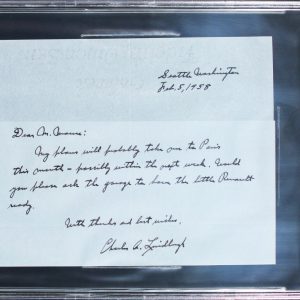 Seattle Washington
Feb. 5, 1958
Dear Mr. :
My plans will probably take me to Paris
this month - possibly within the next week. Would
you please ask the garage to have the little Renault
ready.
With thanks and best wishes,
Charles A. Lindbergh